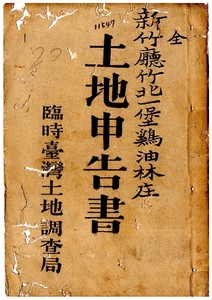 11547
全
新竹廳竹北一堡鷄油林庄
土地申告書
臨時臺灣土地調查局